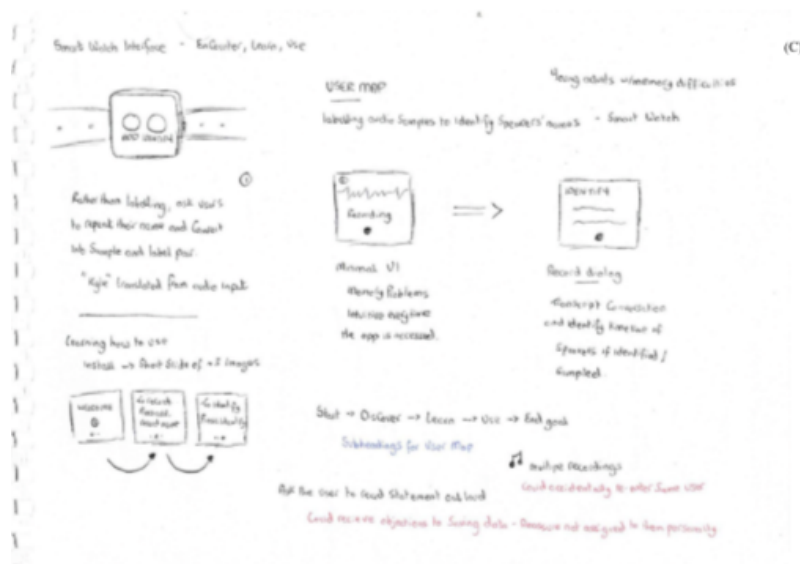 Smart Watch Interface - Encounter, Learn, Use
(C)
ADD IDENTIFY
Rather than labelling, ask users
to repeat their name and Convert
into Sample and label pair.
"Kyle" translated from audio input
Learning how to use
install → Short Slide of images
Welcome
Identify
USER MAP
Young adults w/memory difficulties
labelling audio Samples to Identify Speakers' names - Smart Watch
Recording
IDENTIFY
Minimal UI
Memory Problems
Intuitive everytime
the app is accessed.
Record dialog
Transcript Conversation
and identify
Speakers if identified /
Sampled.
Start → Discover → Learn → Use → End goal
Subheadings for User Map
multiple recordings
Could accidentally re-enter Same user
Ask the user to read Statement outloud
Could receive objections to Saving data - not assigned to them personally